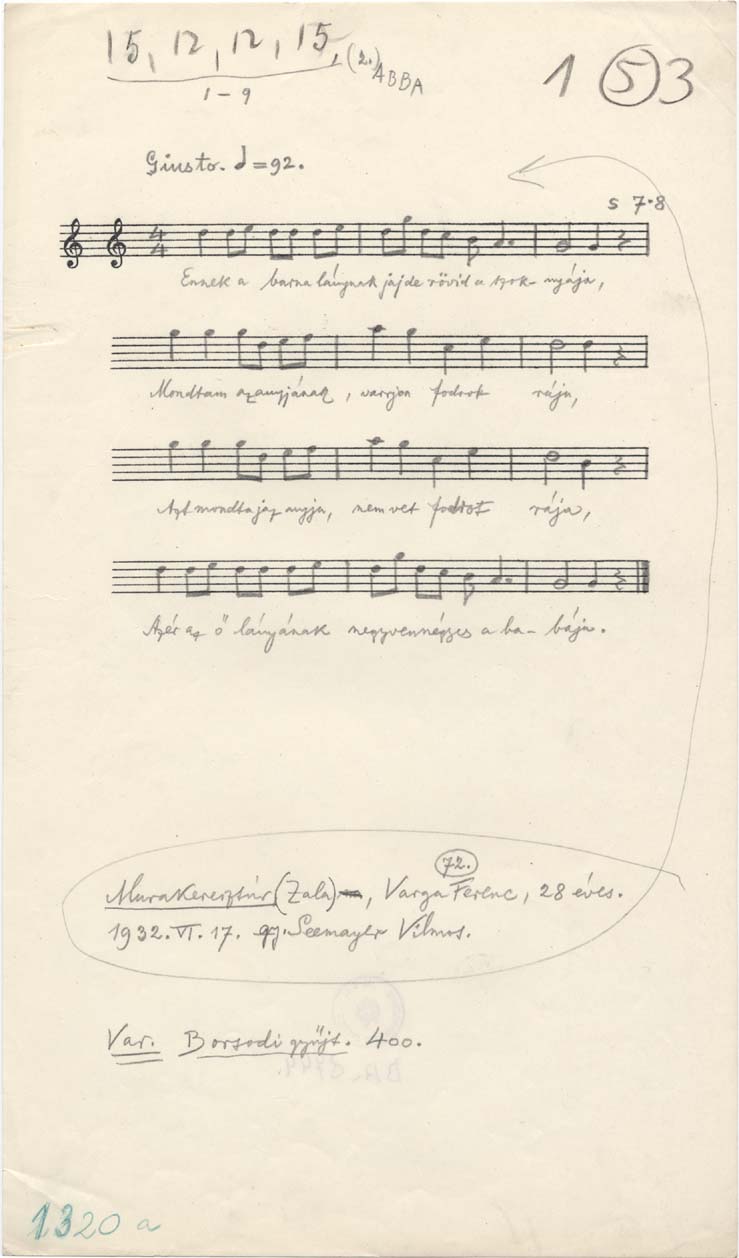 15, 12, 12, 15, (2.) ABBA
1-9
1 5 3
Giusto. = 92.
s 7.8
4
4
Ennek a barna lánynak jajde rövid a szok- nyája,
Mondtam azanyjának, varrjon fodrot rája,
Azt mondtajaz anyja, nem vet fodrot rája,
Azér az ő lányának negyvennégyes a ba- bája.
72.
Murakeresztúr (Zala), Varga Ferenc, 28 éves.
1932. VI. 17. gy. Seemayer Vilmos.
Var. Borsodi gyűjt. 400.
1320 a